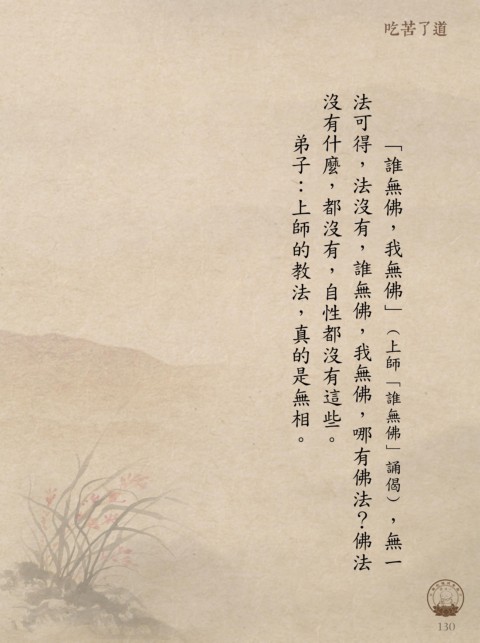 吃苦了道
「誰無佛,我無佛」(上師「誰無佛」誦偈),無一
法可得,法沒有,誰無佛,我無佛,哪有佛法?佛法
沒有什麼,都沒有,自性都沒有這些。
弟子:上師的教法,真的是無相。
130